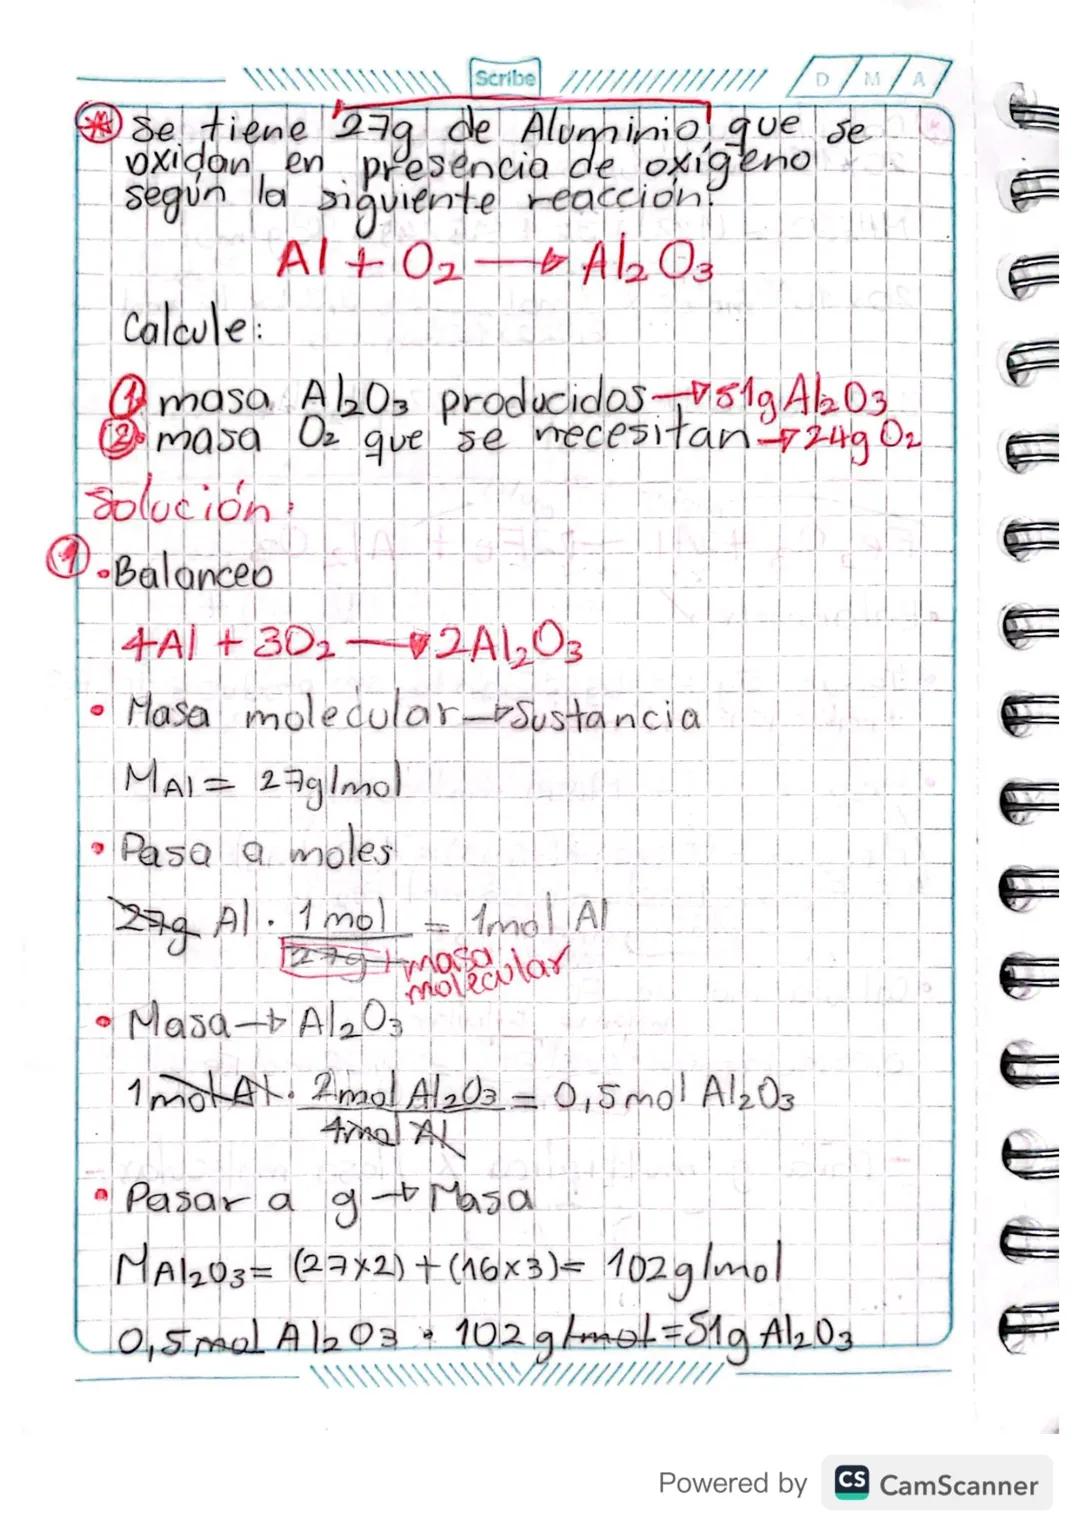 Scribe D / M / A
* Se tiene 27g de Aluminio que se
oxidan en presencia de oxígeno
según la siguiente reacción:
Al + O₂ → Al₂O₃
Calcule:
① masa Al₂O₃ producidos → 51g Al₂O₃
② masa O₂ que se necesitan → 24g O₂
Solución:
① • Balanceo
4Al + 3O₂ → 2Al₂O₃
• Masa molecular → Sustancia
MAl = 27g/mol
• Pasa a moles
27g Al · 1 mol / 27g = 1mol Al
masa
molecular
• Masa → Al₂O₃
1 mol Al · 2mol Al₂O₃ / 4mol Al = 0,5mol Al₂O₃
• Pasar a g → Masa
MAl₂O₃ = (27x2) + (16x3) = 102g/mol
0,5mol Al₂O₃ · 102g/mol = 51g Al₂O₃
Powered by CS CamScanner